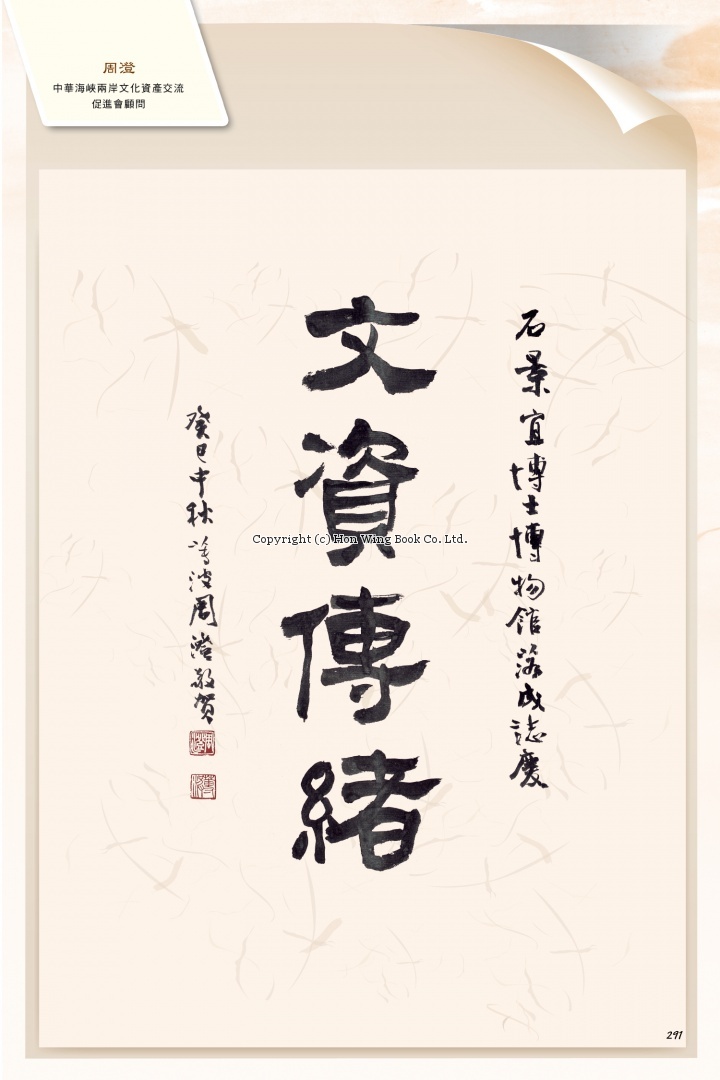 周澄
中華海峽兩岸文化資產交流
促進會顧問
石景宜博士博物館落成誌慶
文資傳緒
癸巳中秋蓴波周澄敬賀
Copyright (c) Hon Wing Book Co. Ltd.
291